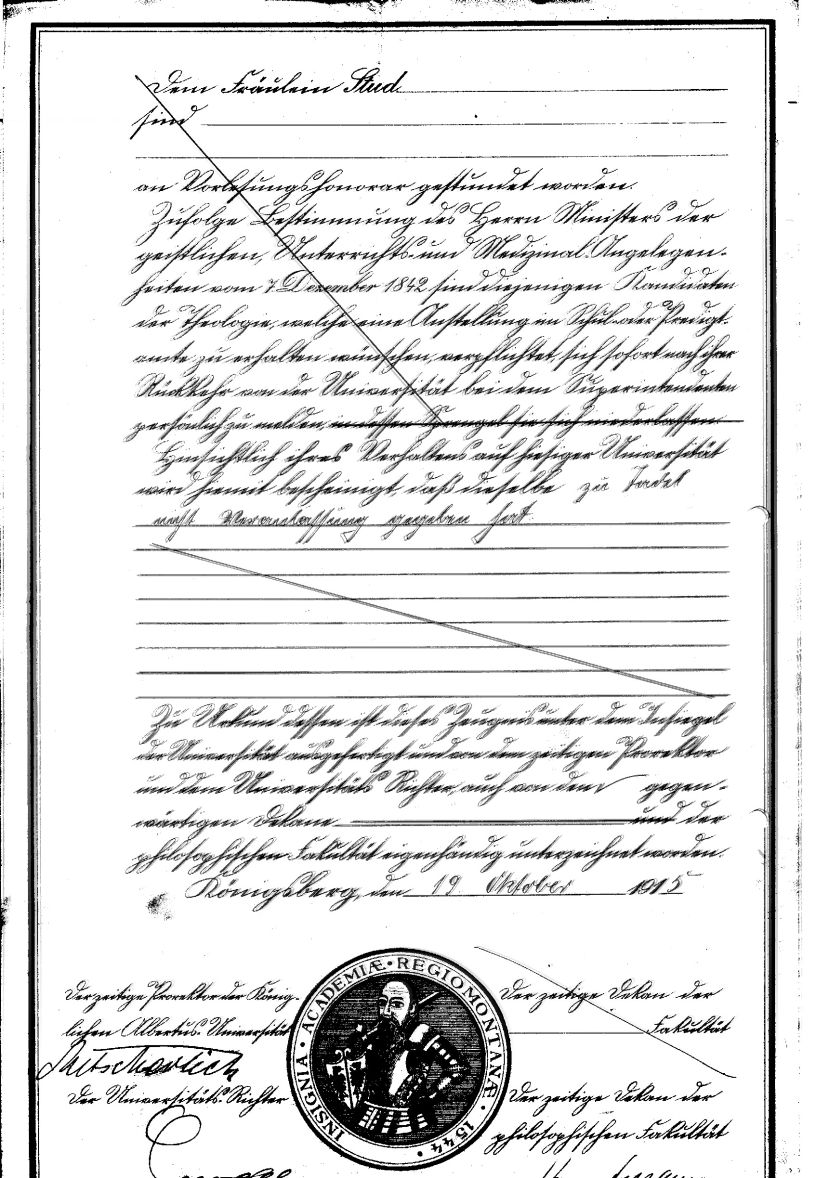 Dem Fräulein Stud.
sind
an Vorlesungshonorar gestundet worden.
Zufolge Bestimmung des Herrn Ministers der
geistlichen, Unterrichts- und Medizinal-Angelegen-
heiten vom 7 Dezember 1842 sind diejenigen Kandidaten
der Theologie, welche eine Anstellung im Schul- oder Predigt-
amte zu erhalten wünschen, verpflichtet, sich sofort nach ihrer
Rückkehr von der Universität bei dem Superintendenten
persönlich zu melden, in dessen Sprengel sie sich niederlassen.
Hinsichtlich ihres Verhaltens auf hiesiger Universität
wird hiemit bescheinigt, daß dieselbe zu Tadel
nicht Veranlassung gegeben hat.
Zu Urkund dessen ist dieses Zeugnis unter dem Insiegel
der Universität ausgefertigt und von dem zeitigen Prorektor
und dem Universitäts Richter, auch von dem gegen-
wärtigen Dekane und der
philosophischen Fakultät eigenhändig unterzeichnet worden.
Königsberg, den 19 Oktober 1915
Der zeitige Prorektor der König-
lichen Albertus-Universität
Der Universitäts-Richter
INSIGNIA · ACADEMIÆ · REGIOMONTANÆ · 1544 ·
Der zeitige Dekan der
Fakultät
Der zeitige Dekan der
philosophischen Fakultät